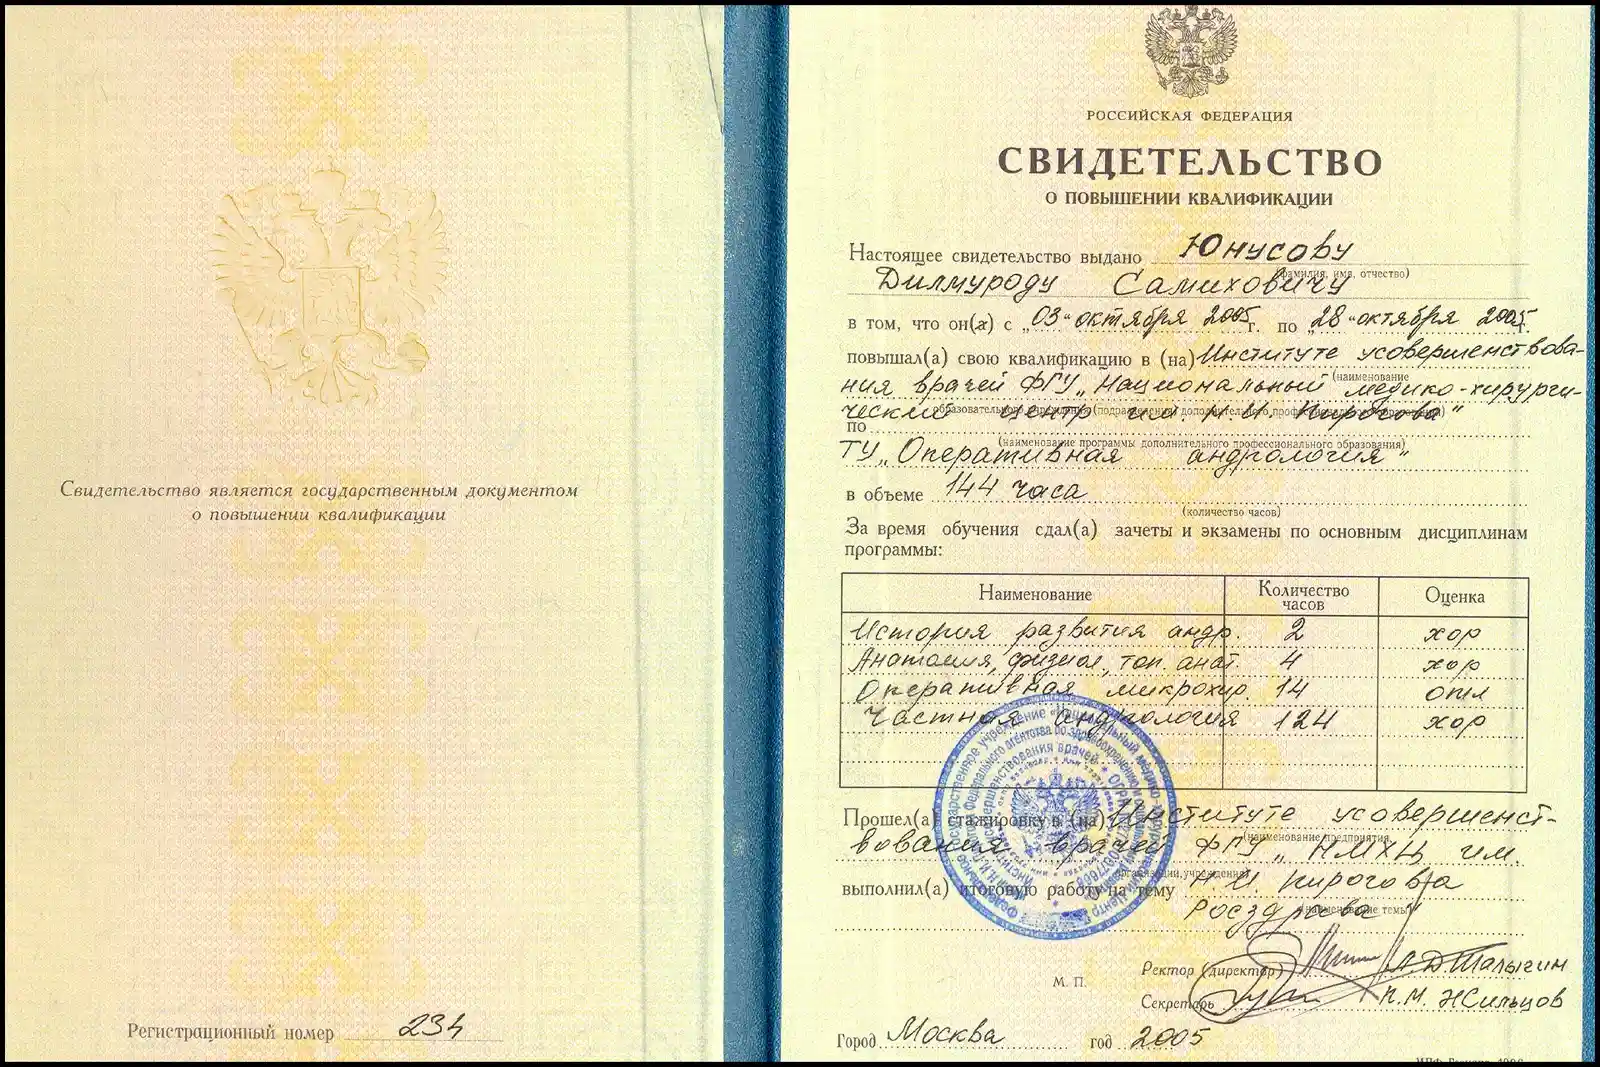 Свидетельство является государственным документом
о повышении квалификации
Регистрационный номер 234
РОССИЙСКАЯ ФЕДЕРАЦИЯ
СВИДЕТЕЛЬСТВО
О ПОВЫШЕНИИ КВАЛИФИКАЦИИ
Настоящее свидетельство выдано Юнусову
(фамилия, имя, отчество)
Дилмуроду Самиховичу
в том, что он(а) с „03“ октября 2005 г. по „28“ октября 2005 г.
повышал(а) свою квалификацию в (на) Институте усовершенствова-
(наименование
ния врачей ФГУ „Национальный медико-хирурги-
образовательного учреждения (подразделения) дополнительного профессионального образования)
ческий центр им. Н.И. Пирогова"
по
(наименование программы дополнительного профессионального образования)
ТУ „Оперативная андрология"
в объеме 144 часа
(количество часов)
За время обучения сдал(а) зачеты и экзамены по основным дисциплинам
программы:
Наименование Количество часов Оценка
История развития андр. 2 хор
Анатомия, физиол., топ. анат. 4 хор
Оперативная микрохир. 14 отл
Частная андрология 124 хор
Прошел(а) стажировку в (на) Институте усовершенст-
(наименование предприятия,
вования врачей ФГУ „НМХЦ им.
организации, учреждения)
выполнил(а) итоговую работу на тему Н.И. Пирогова
(наименование темы)
Росздрава"
Ректор (директор) А.Д. Талыгин
М. П.
Секретарь К.М. Жильцов
Город Москва год 2005